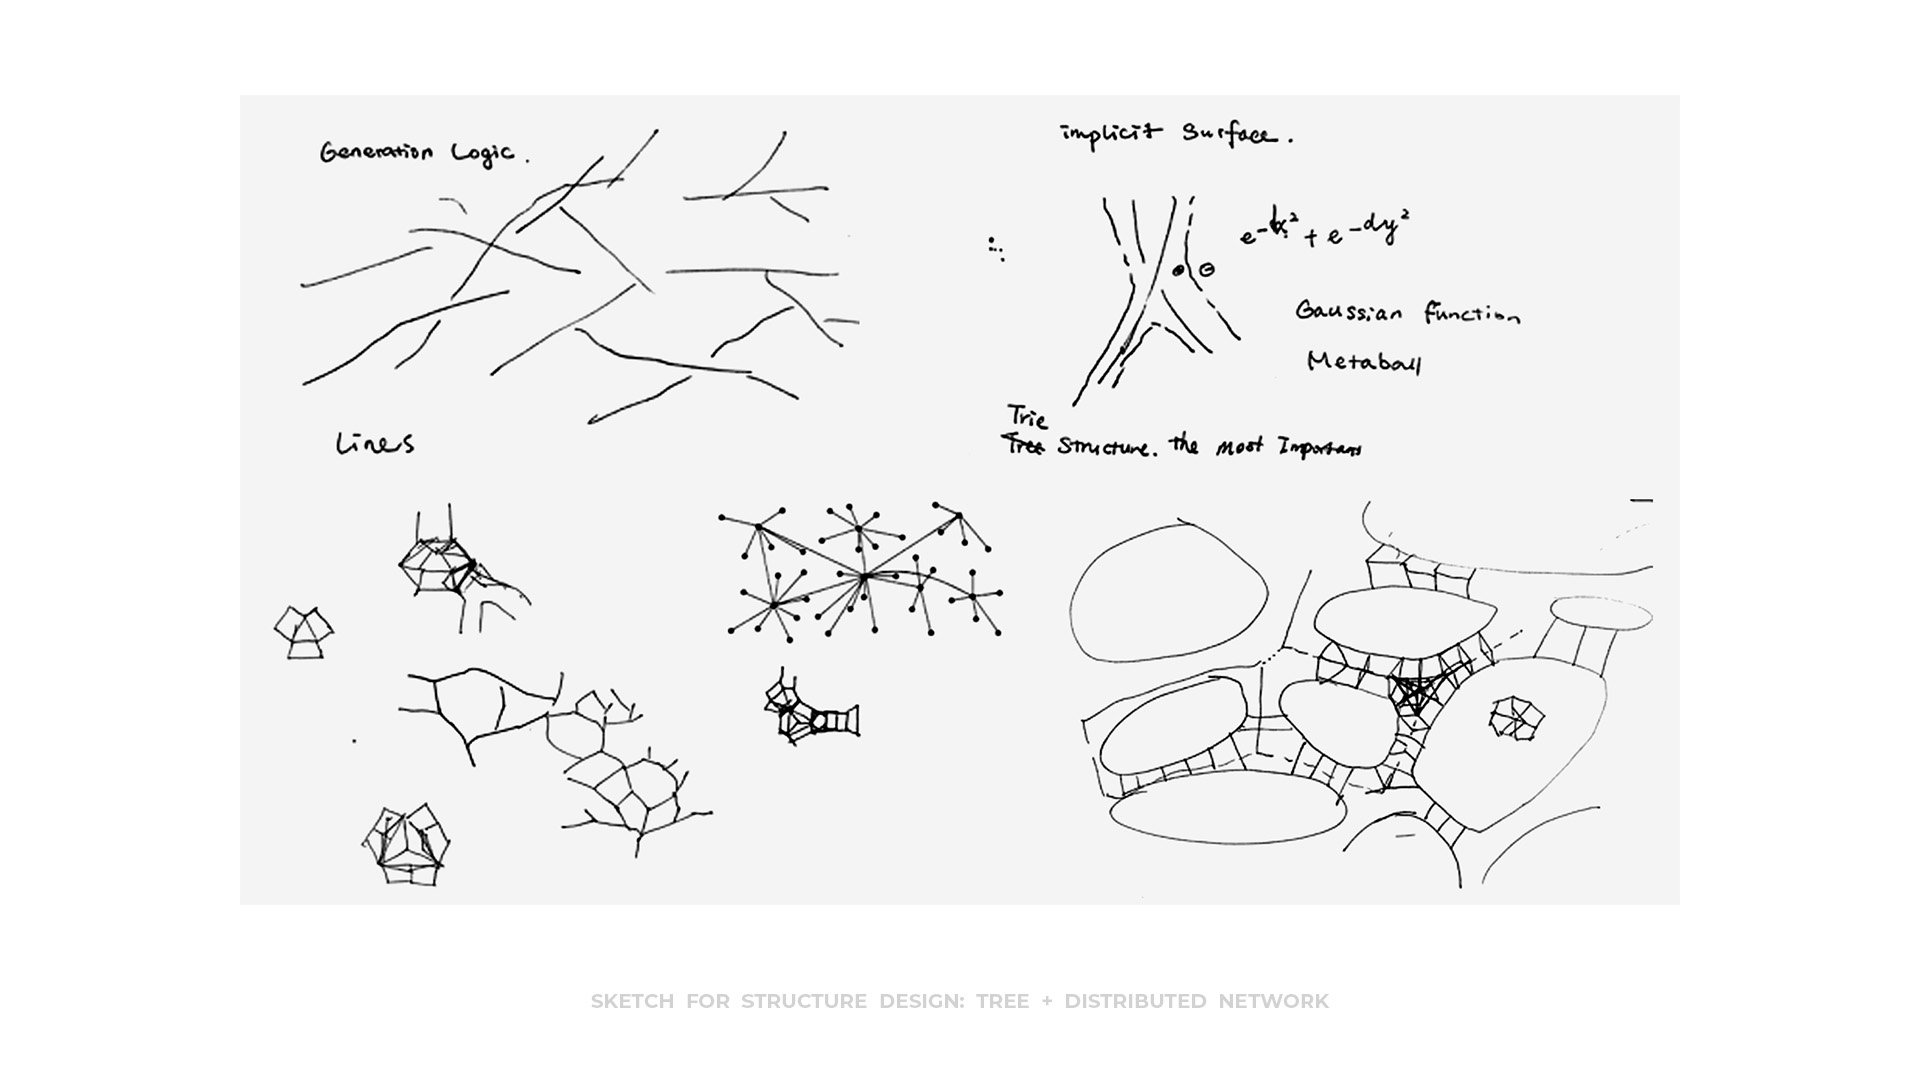 Generation Logic.
implicit Surface.
Gaussian function
Metaball
Liners
Trie
Tree Structure. the most Important
SKETCH FOR STRUCTURE DESIGN: TREE + DISTRIBUTED NETWORK